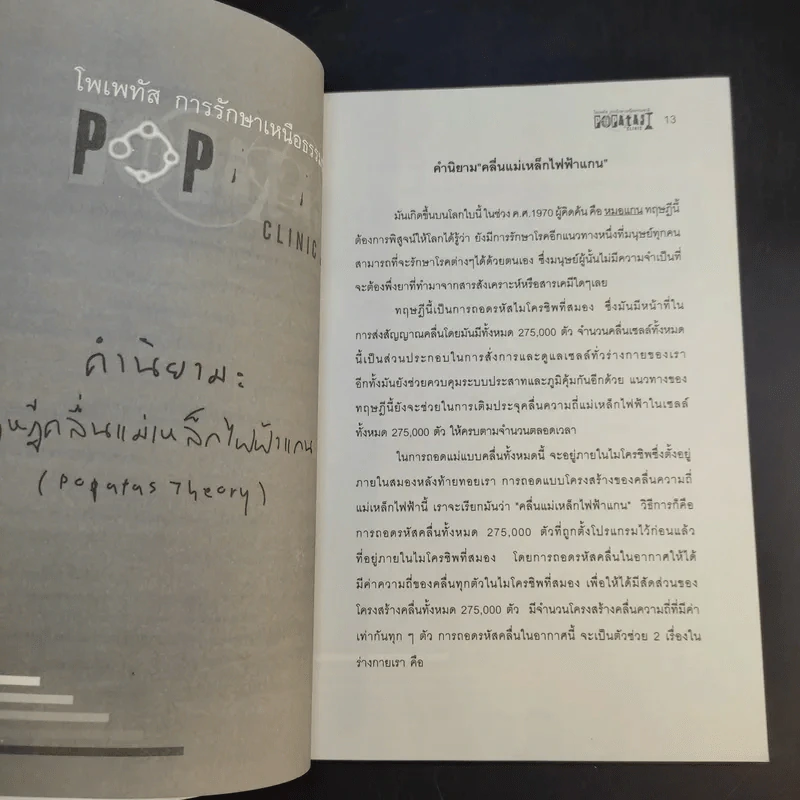 โพเพทัส การรักษาเหนือธรรม
POP
CLINIC
คำนิยามะ
ทฤษฎีคลื่นแม่เหล็กไฟฟ้าแกน
(Popatas Theory)
POPATAS
13
คำนิยาม"คลื่นแม่เหล็กไฟฟ้าแกน"
มันเกิดขึ้นบนโลกใบนี้ ในช่วง ค.ศ.1970 ผู้คิดค้น คือ หมอแกน ทฤษฎีนี้
ต้องการพิสูจน์ให้โลกได้รู้ว่า ยังมีการรักษาโรคอีกแนวทางหนึ่งที่มนุษย์ทุกคน
สามารถที่จะรักษาโรคต่างๆได้ด้วยตนเอง ซึ่งมนุษย์ผู้นั้นไม่มีความจำเป็นที่
จะต้องพึ่งยาที่ทำมาจากสารสังเคราะห์หรือสารเคมีใดๆเลย
ทฤษฎีนี้เป็นการถอดรหัสไมโครชิพที่สมอง ซึ่งมันมีหน้าที่ใน
การส่งสัญญาณคลื่นโดยมันมีทั้งหมด 275,000 ตัว จำนวนคลื่นเซลล์ทั้งหมด
นี้เป็นส่วนประกอบในการสั่งการและดูแลเซลล์ทั่วร่างกายของเรา
อีกทั้งมันยังช่วยควบคุมระบบประสาทและภูมิคุ้มกันอีกด้วย แนวทางของ
ทฤษฎีนี้ยังจะช่วยในการเติมประจุคลื่นความถี่แม่เหล็กไฟฟ้าในเซลล์
ทั้งหมด 275,000 ตัว ให้ครบตามจำนวนตลอดเวลา
ในการถอดแม่แบบคลื่นทั้งหมดนี้ จะอยู่ภายในไมโครชิพซึ่งตั้งอยู่
ภายในสมองหลังท้ายทอยเรา การถอดแบบโครงสร้างของคลื่นความถี่
แม่เหล็กไฟฟ้านี้ เราจะเรียกมันว่า "คลื่นแม่เหล็กไฟฟ้าแกน" วิธีการก็คือ
การถอดรหัสคลื่นทั้งหมด 275,000 ตัวที่ถูกตั้งโปรแกรมไว้ก่อนแล้ว
ที่อยู่ภายในไมโครชิพที่สมอง โดยการถอดรหัสคลื่นในอากาศให้ได้
มีค่าความถี่ของคลื่นทุกตัวในไมโครชิพที่สมอง เพื่อให้ได้มีสัดส่วนของ
โครงสร้างคลื่นทั้งหมด 275,000 ตัว มีจำนวนโครงสร้างคลื่นความถี่ที่มีค่า
เท่ากันทุก ๆ ตัว การถอดรหัสคลื่นในอากาศนี้ จะเป็นตัวช่วย 2 เรื่องใน
ร่างกายเรา คือ